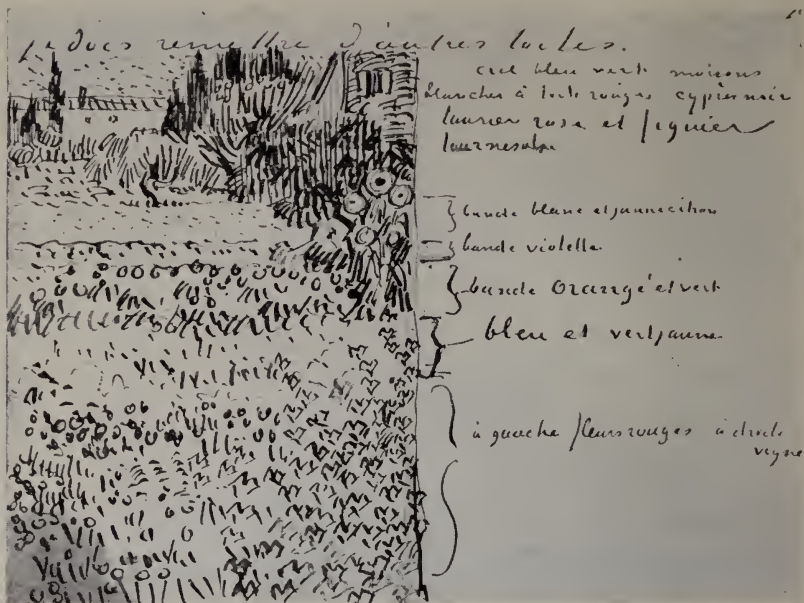 je dois remettre d'autres toiles.
ciel bleu vert maisons
blanches à toits rouges cyprès noir
laurier rose et figuier
tournesols
bande blanc et jaune citron
bande violette
bande Orangé et vert
bleu et vert jaune
à gauche fleurs rouges à droite
vigne